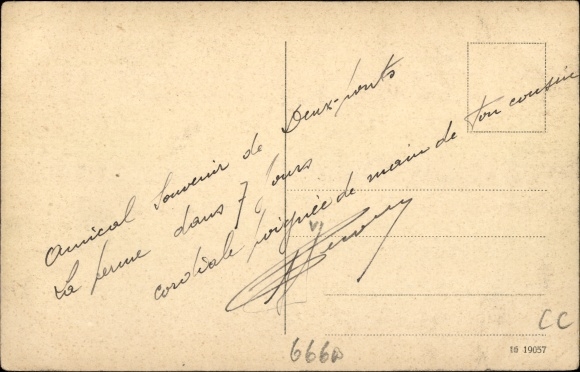 Amical Souvenir de Deux-ponts
La perme dans 7 jours
cordiale poignée de main de ton cousin
666D
CC
10 19057